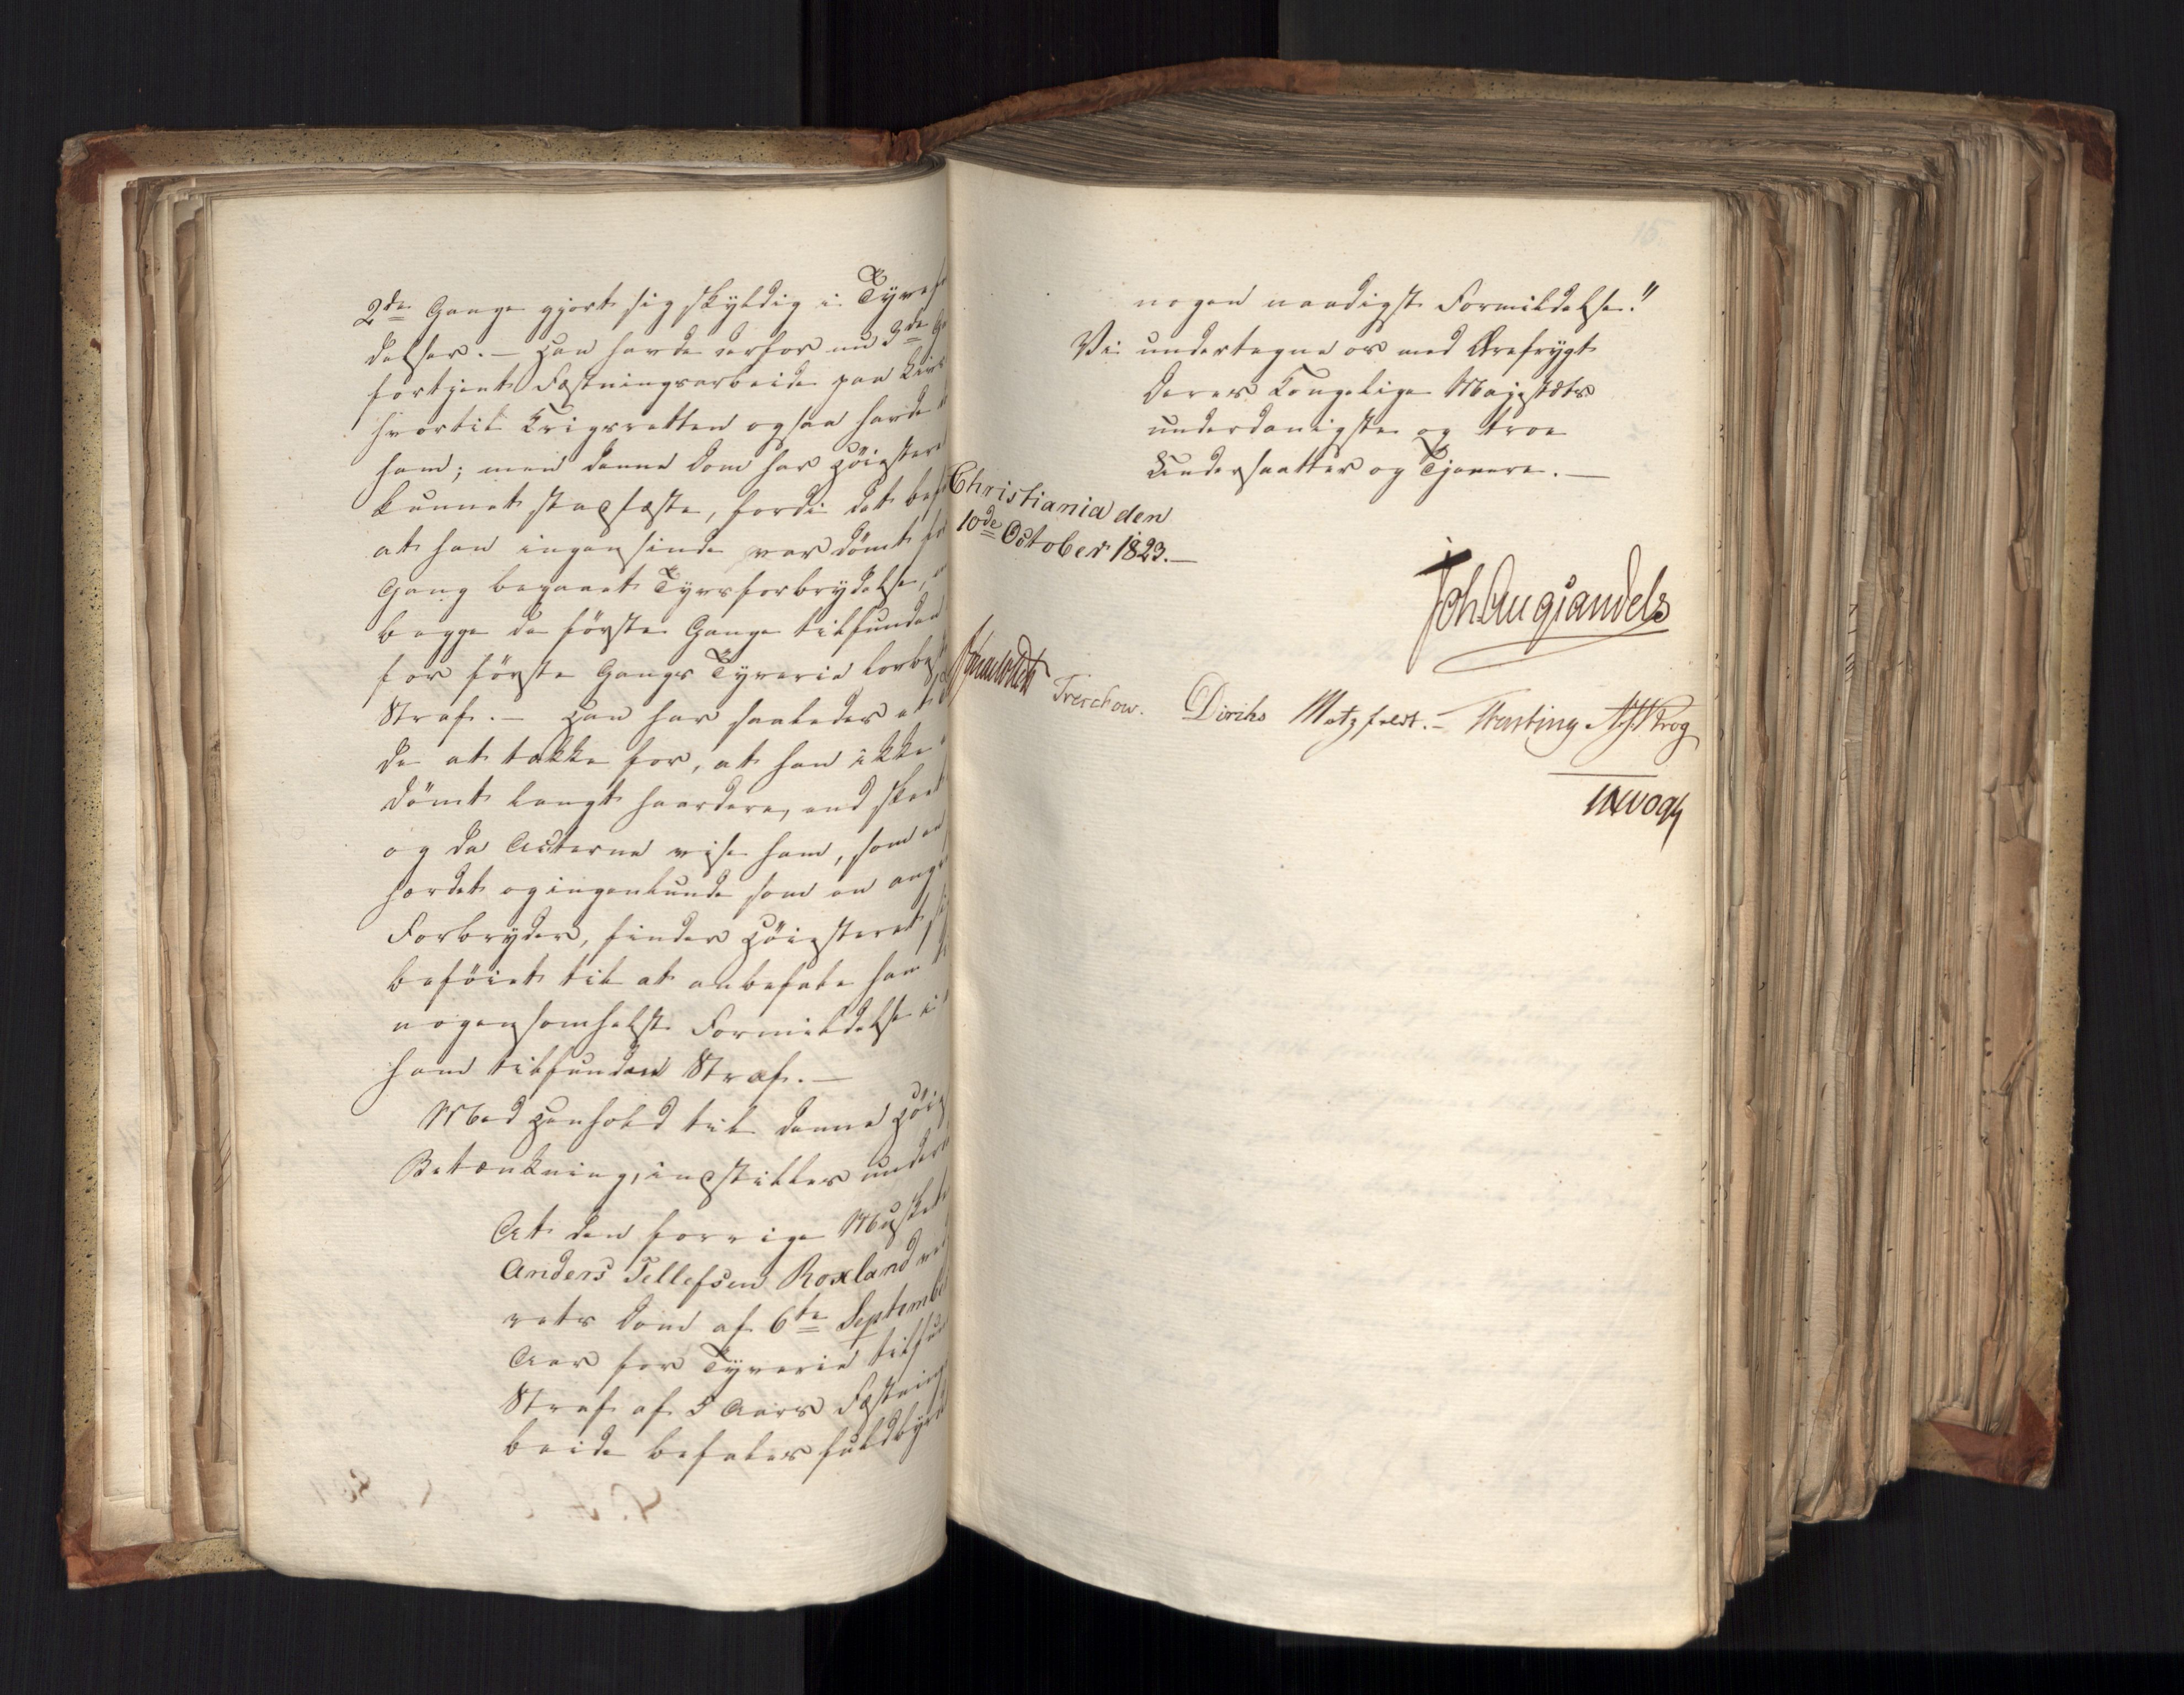 2de Gange gjort sig skyldig i Tyvsf
delser. – Han havde derfor nu 3de G
fortjent Fæstningsarbeide paa Livs
hvortil Krigsretten ogsaa havde d
ham; men denne Dom har Høiestere
kunnet stadfæste, fordi det bef
at han ingensinde var dømt for
Gang begaaet Tyvsforbrydelse,
begge de første Gange tilfunden
for første Gangs Tyverie lovbest
Straf. – Han har saaledes
de at takke for, at han ikke
dömt langt haardere, end skeet
og da Acterne vise ham, som en
hærdet og ingenlunde som en ang
Forbryder, finder Höiesteret
beföiet til at anbefale ham
nogensomhelst Formildelse i
ham tilfunden Straf. –
Med Henhold til denne Höie
Betænkning, indstilles under
At den forrige Musket
Anders Tellefsen Roxland ved
rets Dom af 6te Septembe
Aar for Tyverie tilfun
Straf af 5 Aars Fæstning
beide befales fuldbyr
15
nogen naadigst Formildelse."
Vi undertegne os med Ærefrygt
Deres Kongelige Majestæts
underdanigste og troe
Undersaatter og Tjenere. –
Christiania den
10de October 1823. –
Joh Aug Sandels
Treschow. Diriks Motzfeldt. – Fasting A. Krog
Vogt